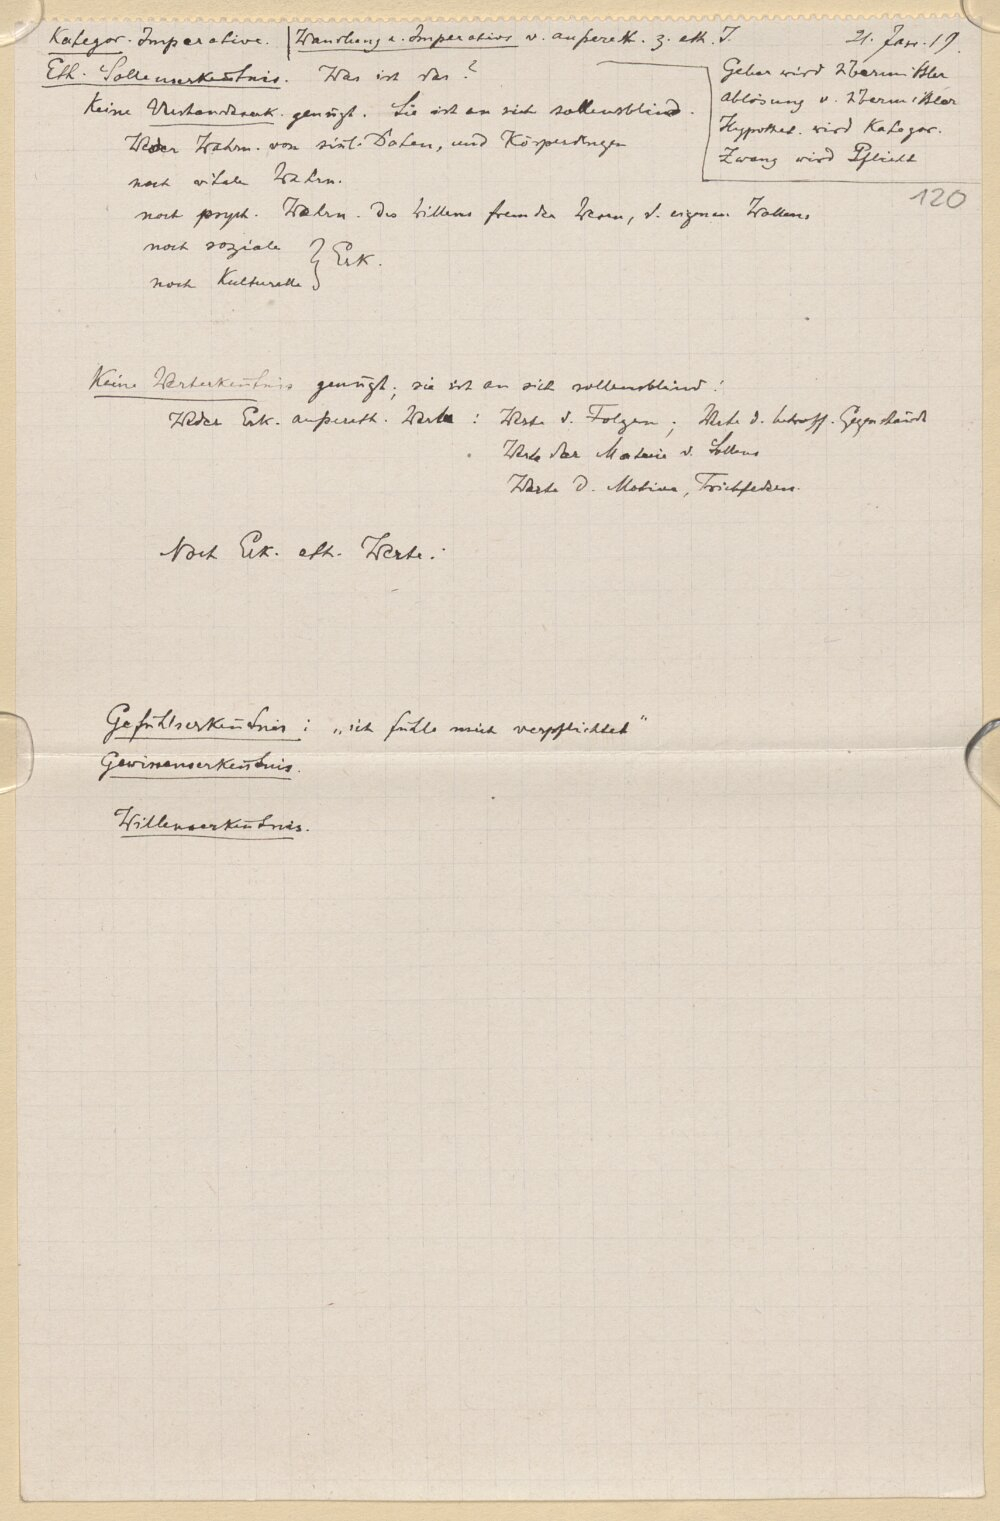 Kategor. Imperative. | Wandlung e. Imperativs v. außereth. z. eth. I. 21. Jan. 19.
Eth. Sollenserkenntnis. Was ist das?
Geber wird Übermittler
Ablösung v. Übermittler
Hypothet. wird Kategor.
Zwang wird Pflicht
120
Keine Verstandeserk. genügt. Sie ist an sich sollensblind.
Weder Wahrn. von sinl. Daten, und Körperdingen
noch vitale Wahrn.
noch psych. Wahrn. des Willens fremder Wesen, d. eigenen Wollens
noch soziale } Erk.
noch Kulturelle
Keine Werterkenntnis genügt; sie ist an sich sollensblind!
Weder Erk. außereth. Werte: Werte d. Folgen; Werte d. betroff. Gegenstände
Werte der Materie d. Sollens
Werte d. Motive, Triebfedern.
Noch Erk. eth. Werte:
Gefühlserkenntnis: „ich fühle mich verpflichtet"
Gewissenserkenntnis.
Willenserkenntnis.